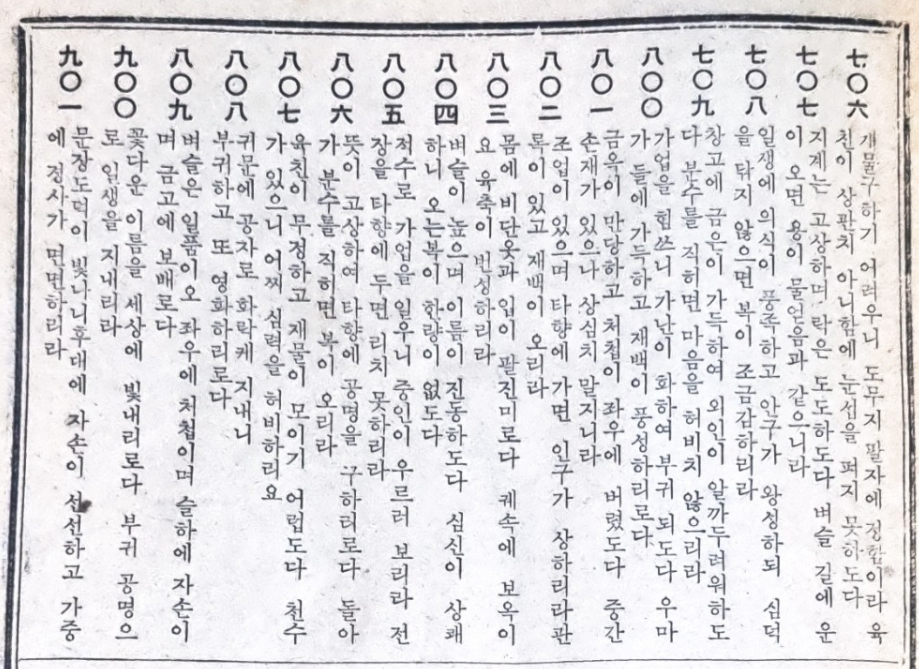 七〇六
재물구하기 어려우니 도무지 팔자에 정함이라 육
친이 상관치 아니함에 눈섭을 펴지 못하도다
七〇七
지계는 고상하며 락은 도도하도다 벼슬 길에 운
이 오면 용이 물얻음과 같으니라
七〇八
일생에 의식이 풍족하고 안구가 왕성하되 심덕
을 닦지 않으면 복이 조금감하리라
七〇九
창고에 금은이 가득하여 외인이 알까두려워하도
다 분수를 직히면 마음을 허비치 않으리라
八〇〇
가업을 힘쓰니 가난이 화하여 부귀 되도다 우마
가 들에 가득하고 재백이 풍성하리로다
八〇一
금옥이 만당하고 처첩이 좌우에 버렸도다 중간
손재가 있으나 상심치 말지니라
八〇二
조업이 있으며 타향에 가면 인구가 상하리라관
록이 있고 재백이 오리라
八〇三
몸에 비단옷과 입이 팔진미로다 궤속에 보옥이
요 육축이 번성하리라
八〇四
벼슬이 높으며 이름이 진동하도다 심신이 상쾌
하니 오는복이 한량이 없도다
八〇五
적수로 가업을 일우니 중인이 우르러 보리라 전
장을 타향에 두면 리치 못하리라
八〇六
뜻이 고상하여 타향에 공명을 구하리로다 돌아
가 분수를 직히면 복이 오리라
八〇七
육친이 무정하고 재물이 모이기 어렵도다 천수
가 있으니 어찌 심력을 허비하리요
八〇八
귀문에 공자로 화락케 지내니
부귀하고 또 영화하리로다
八〇九
벼슬은 일품이오 좌우에 처첩이며 슬하에 자손이
며 금고에 보배로다
九〇〇
꽃다운 이름을 세상에 빛내리로다 부귀 공명으
로 일생을 지내리라
九〇一
문장도덕이 빛나니후대에 자손이 선선하고 가중
에 경사가 면면하리라